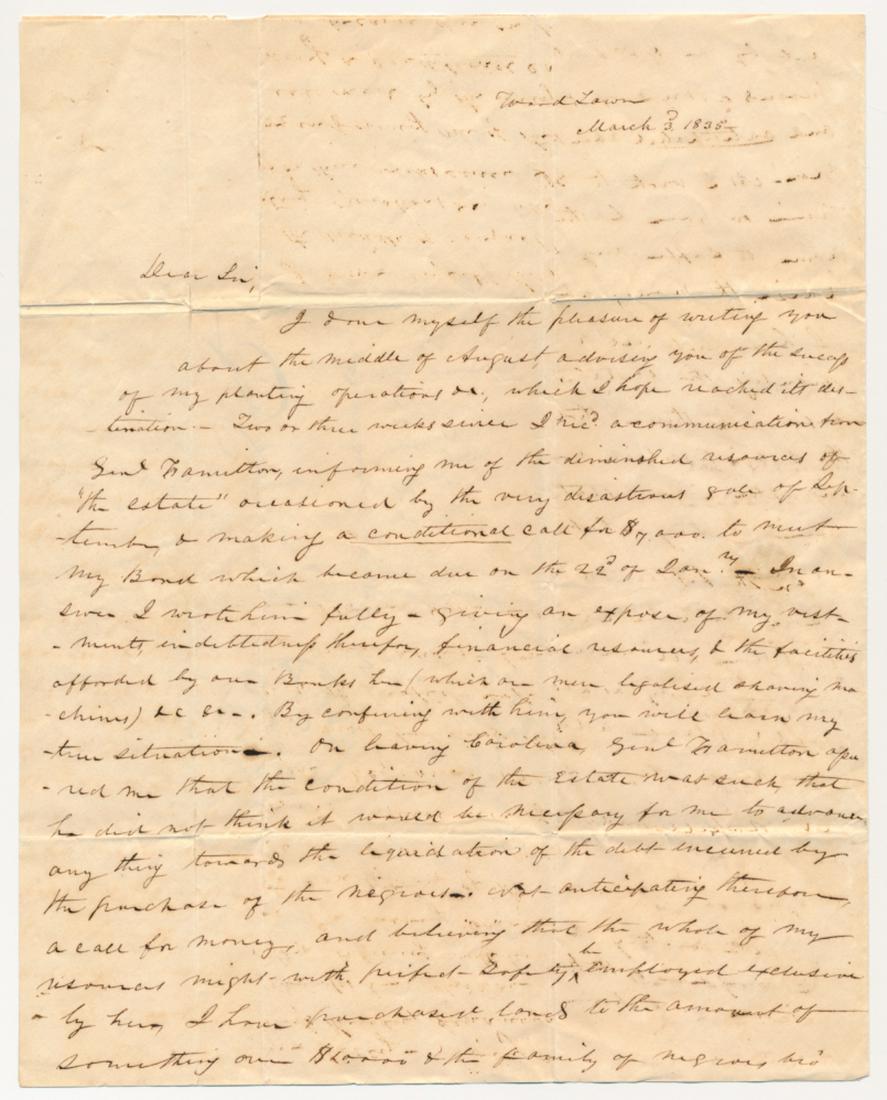 Wood Lawn
March 3d 1835
Dear Sir,
I done myself the pleasure of writing you
about the middle of August, advising you of the success
of my planting operations &c., which I hope reached its des-
tination. – Two or three weeks since I recd. a communication from
Genl Hamilton, informing me of the diminished resources of
"the estate" occasioned by the very disastrous gale of Sep-
-tember, & making a conditional call for $7,000. to meet
my Bond which became due on the 22d of Jany. – In an-
swer I wrote him fully – giving an expose, of my vest-
-ments, indebtedness therefor, financial resources, & the facilities
afforded by our Banks here (which are mere legalised shaving ma
-chines) &c &c –. By confering with him, you will learn my
true situation –. On leaving Carolina, Genl Hamilton assu
-red me that the condition of the Estate was such, that
he did not think it would be necessary for me to advance
any thing towards the liquidation of the debt incurred by
the purchase of the negroes –. Not anticipating therefore,
a call for money, and believing that the whole of my
resources might with perfect safety, be employed exclusive
-ly here, I have purchased lands to the amount of
something over & the family of negroes,